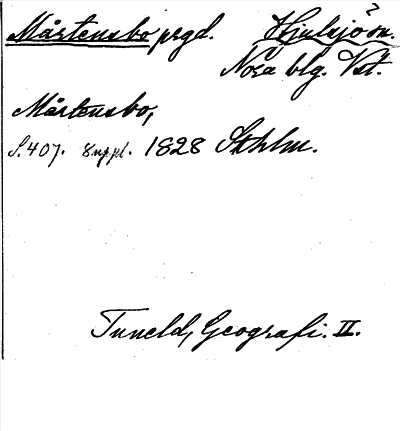 Mårtensbo prgd. Hjulsjö sn. ?
Nora blg. Vst.
Mårtensbo,
S. 407. 8 uppl. 1828 Sthlm.
Tuneld, Geografi. II.